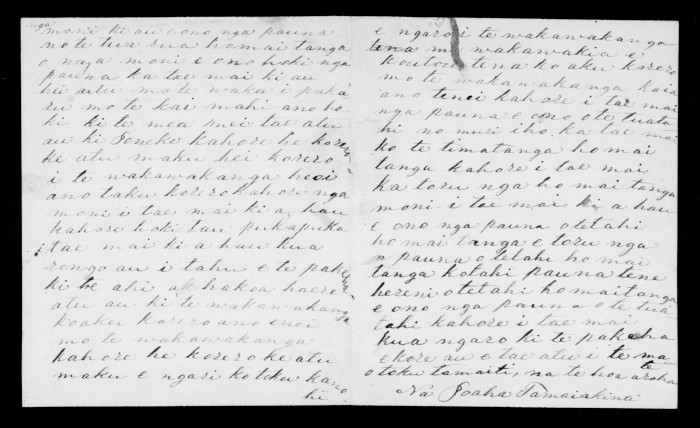 nga
moni ki au e ono nga pauna
no te tua rua homai tanga
o naia moni e ono hoki nga
pauna ka tae mai ki au
hei utu mo te waka i paka
ru mo te kai mahi ano ho
ki ki te mea mei tae atu
au ki Poneke kahore he korero
ke atu maku hei korero
i te wakawakanga heoi
ano taku korero kahore nga
moni i tae mai ki a hau
kahore hoki tau pukapuka
i tae mai ki a hau kua
rongo au i tahu e te pakeha
ki te ahi ake hakoa haere
atu au ki te wakawakanga
ko aku korero ano enei
mo te wakawakanga
kahore he korero ke atu
maku e ngari ko toku karo
hi
e ngaro i te wakawakanga
tena ma wakawakia e
koutou tena ko aku korero
mo te wakawakanga kaia
ano tenei kahore i tae mai
nga pauna e ono o te tuata
hi no muri iho ka tae mai
ko te timatanga homai
tanga kahore i tae mai
ka toru nga homai tanga
moni i tae mai ki a hau
e ono nga pauna o tetahi
homai tanga e toru nga
pauna o tetahi homai
tanga kotahi pauna tene
hereni o tetahi homaitanga
e ono nga pauna o te tua
tahi kahore i tae mai
kua ngaro ki te pakeha
ekore au e tae atu i te mate
o toku tamaiti, na te hoa aroha
Na Poaha Tamaiakina